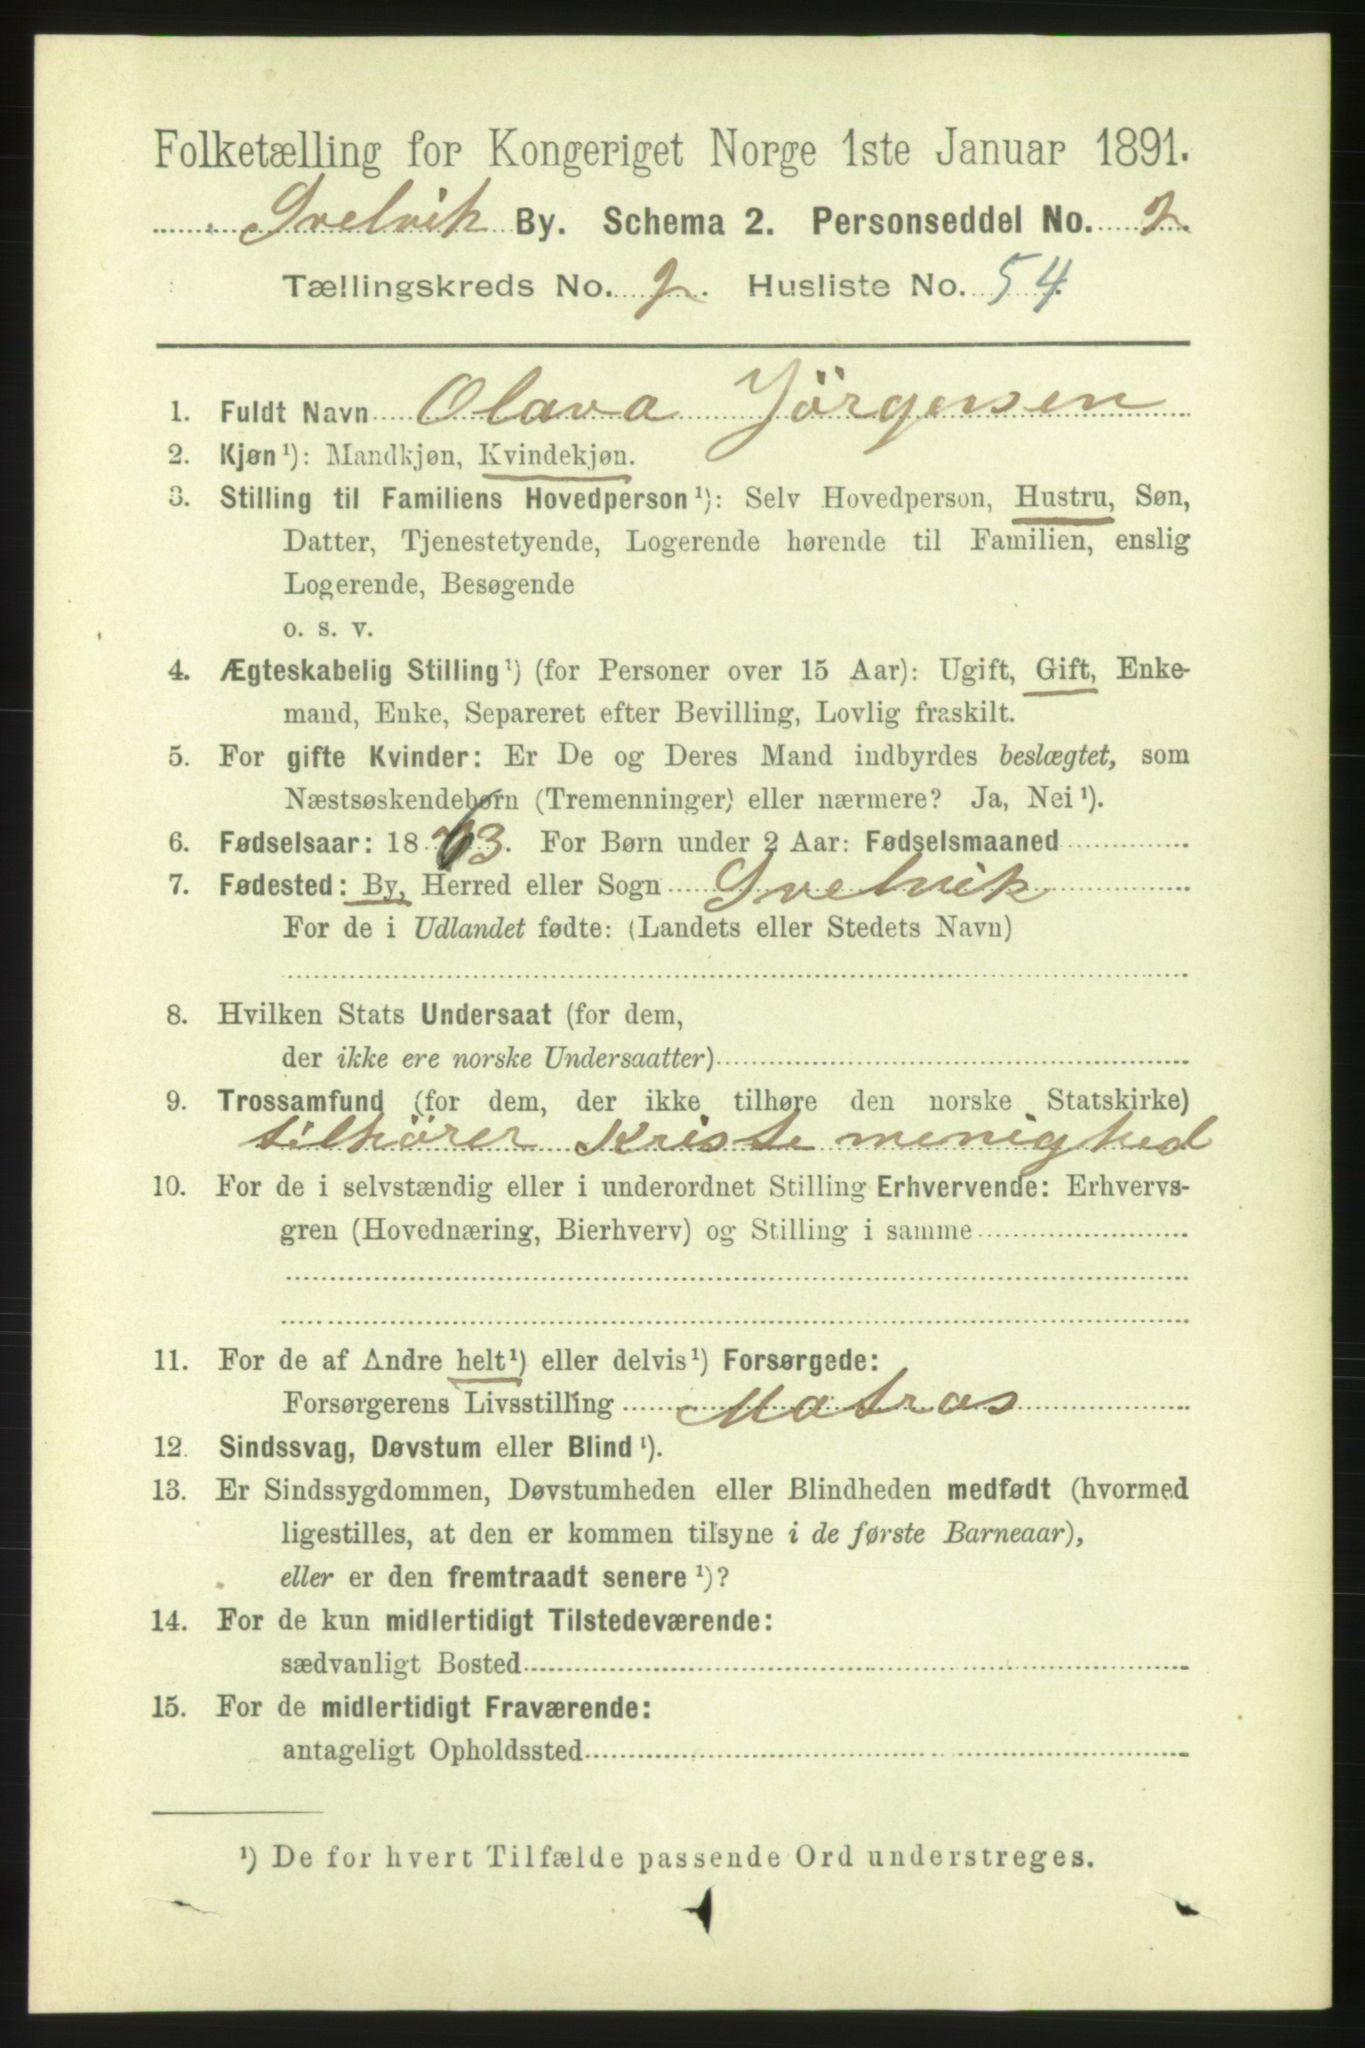 Folketælling for Kongeriget Norge 1ste Januar 1891.
Svelvik By. Schema 2. Personseddel No. 2.
Tællingskreds No. 2. Husliste No. 54
1. Fuldt Navn Olava Jörgensen
2. Kjøn ¹): Mandkjøn, Kvindekjøn.
3. Stilling til Familiens Hovedperson ¹): Selv Hovedperson, Hustru, Søn,
Datter, Tjenestetyende, Logerende hørende til Familien, enslig
Logerende, Besøgende
o. s. v.
4. Ægteskabelig Stilling ¹) (for Personer over 15 Aar): Ugift, Gift, Enke-
mand, Enke, Separeret efter Bevilling, Lovlig fraskilt.
5. For gifte Kvinder: Er De og Deres Mand indbyrdes beslægtet, som
Næstsøskendebørn (Tremenninger) eller nærmere? Ja, Nei ¹).
6. Fødselsaar: 1863. For Børn under 2 Aar: Fødselsmaaned
7. Fødested: By, Herred eller Sogn Svelvik
For de i Udlandet fødte: (Landets eller Stedets Navn)
8. Hvilken Stats Undersaat (for dem,
der ikke ere norske Undersaatter)
9. Trossamfund (for dem, der ikke tilhøre den norske Statskirke)
tilhörer Kriste menighed
10. For de i selvstændig eller i underordnet Stilling Erhvervende: Erhvervs-
gren (Hovednæring, Bierhverv) og Stilling i samme
11. For de af Andre helt ¹) eller delvis ¹) Forsørgede:
Forsørgerens Livsstilling Matros
12. Sindssvag, Døvstum eller Blind ¹).
13. Er Sindssygdommen, Døvstumheden eller Blindheden medfødt (hvormed
ligestilles, at den er kommen tilsyne i de første Barneaar),
eller er den fremtraadt senere ¹)?
14. For de kun midlertidigt Tilstedeværende:
sædvanligt Bosted
15. For de midlertidigt Fraværende:
antageligt Opholdssted
¹) De for hvert Tilfælde passende Ord understreges.